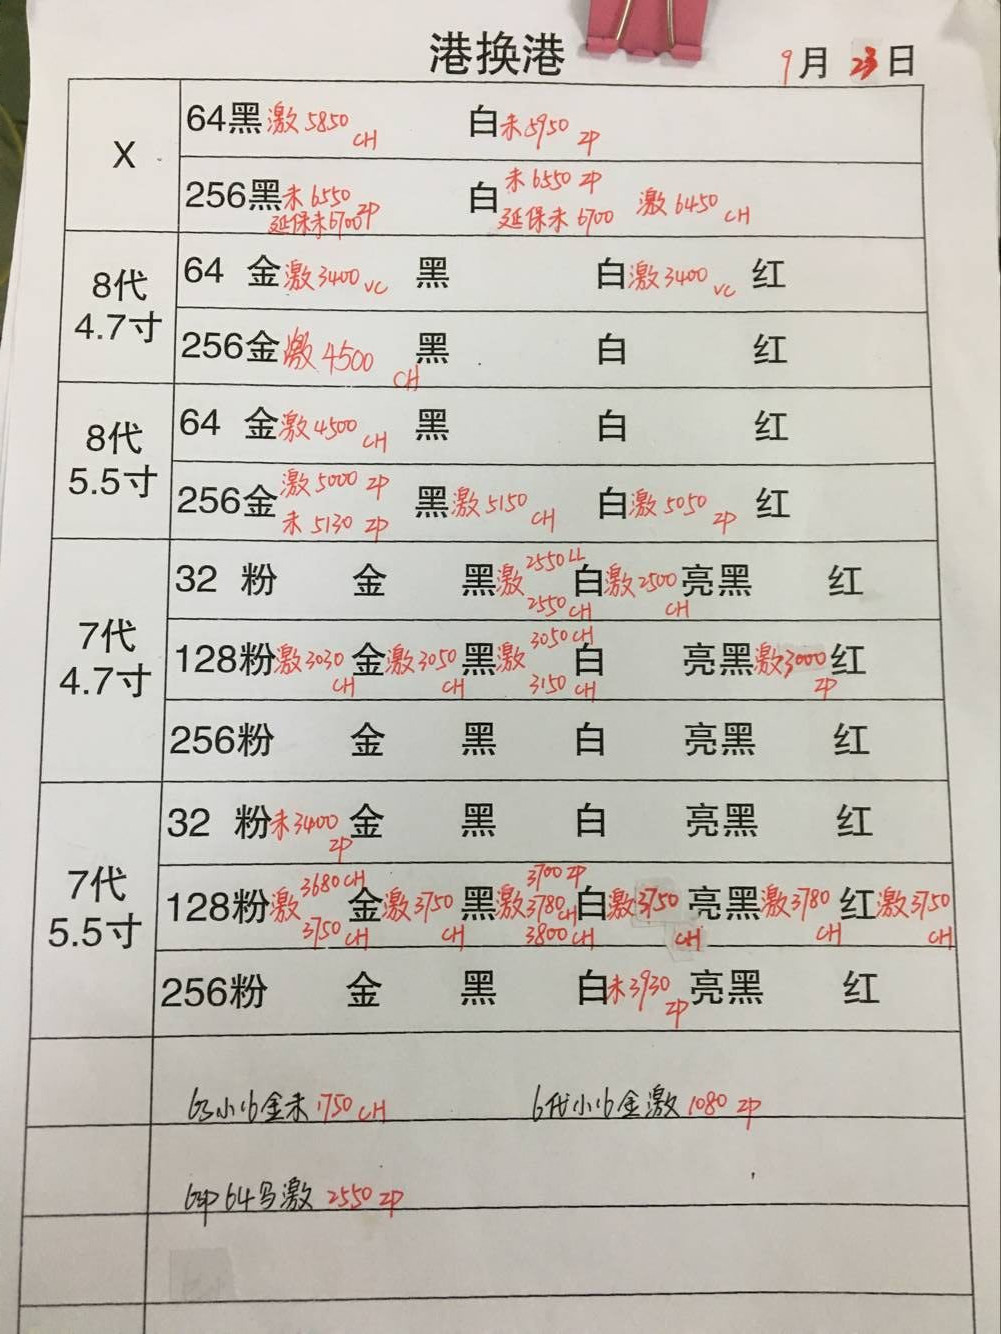 港换港
9月 23日
X
64黑激5850 CH 白未5950 ZP
256黑未6550 ZP 延保未6700 ZP 白未6550 ZP 延保未6700 激6450 CH
8代
4.7寸
64 金激3400 VC 黑 白激3400 VC 红
256金激4500 CH 黑 白 红
8代
5.5寸
64 金激4500 CH 黑 白 红
256金激5000 ZP 未5130 ZP 黑激5150 CH 白激5050 ZP 红
7代
4.7寸
32 粉 金 黑激2550 LL 2550 CH 白激2500 CH 亮黑 红
128粉激3030 CH 金激3050 CH 黑激3050 CH 3150 CH 白 亮黑激3000 ZP 红
256粉 金 黑 白 亮黑 红
7代
5.5寸
32 粉未3400 ZP 金 黑 白 亮黑 红
128粉激3680 CH 3750 CH 金激3750 CH 黑激3700 ZP 3780 CH 3800 CH 白激3750 CH 亮黑激3780 CH 红激3750 CH
256粉 金 黑 白未3930 ZP 亮黑 红
小16金未1750 CH 6代小16金激1080 ZP
64 激2550 ZP